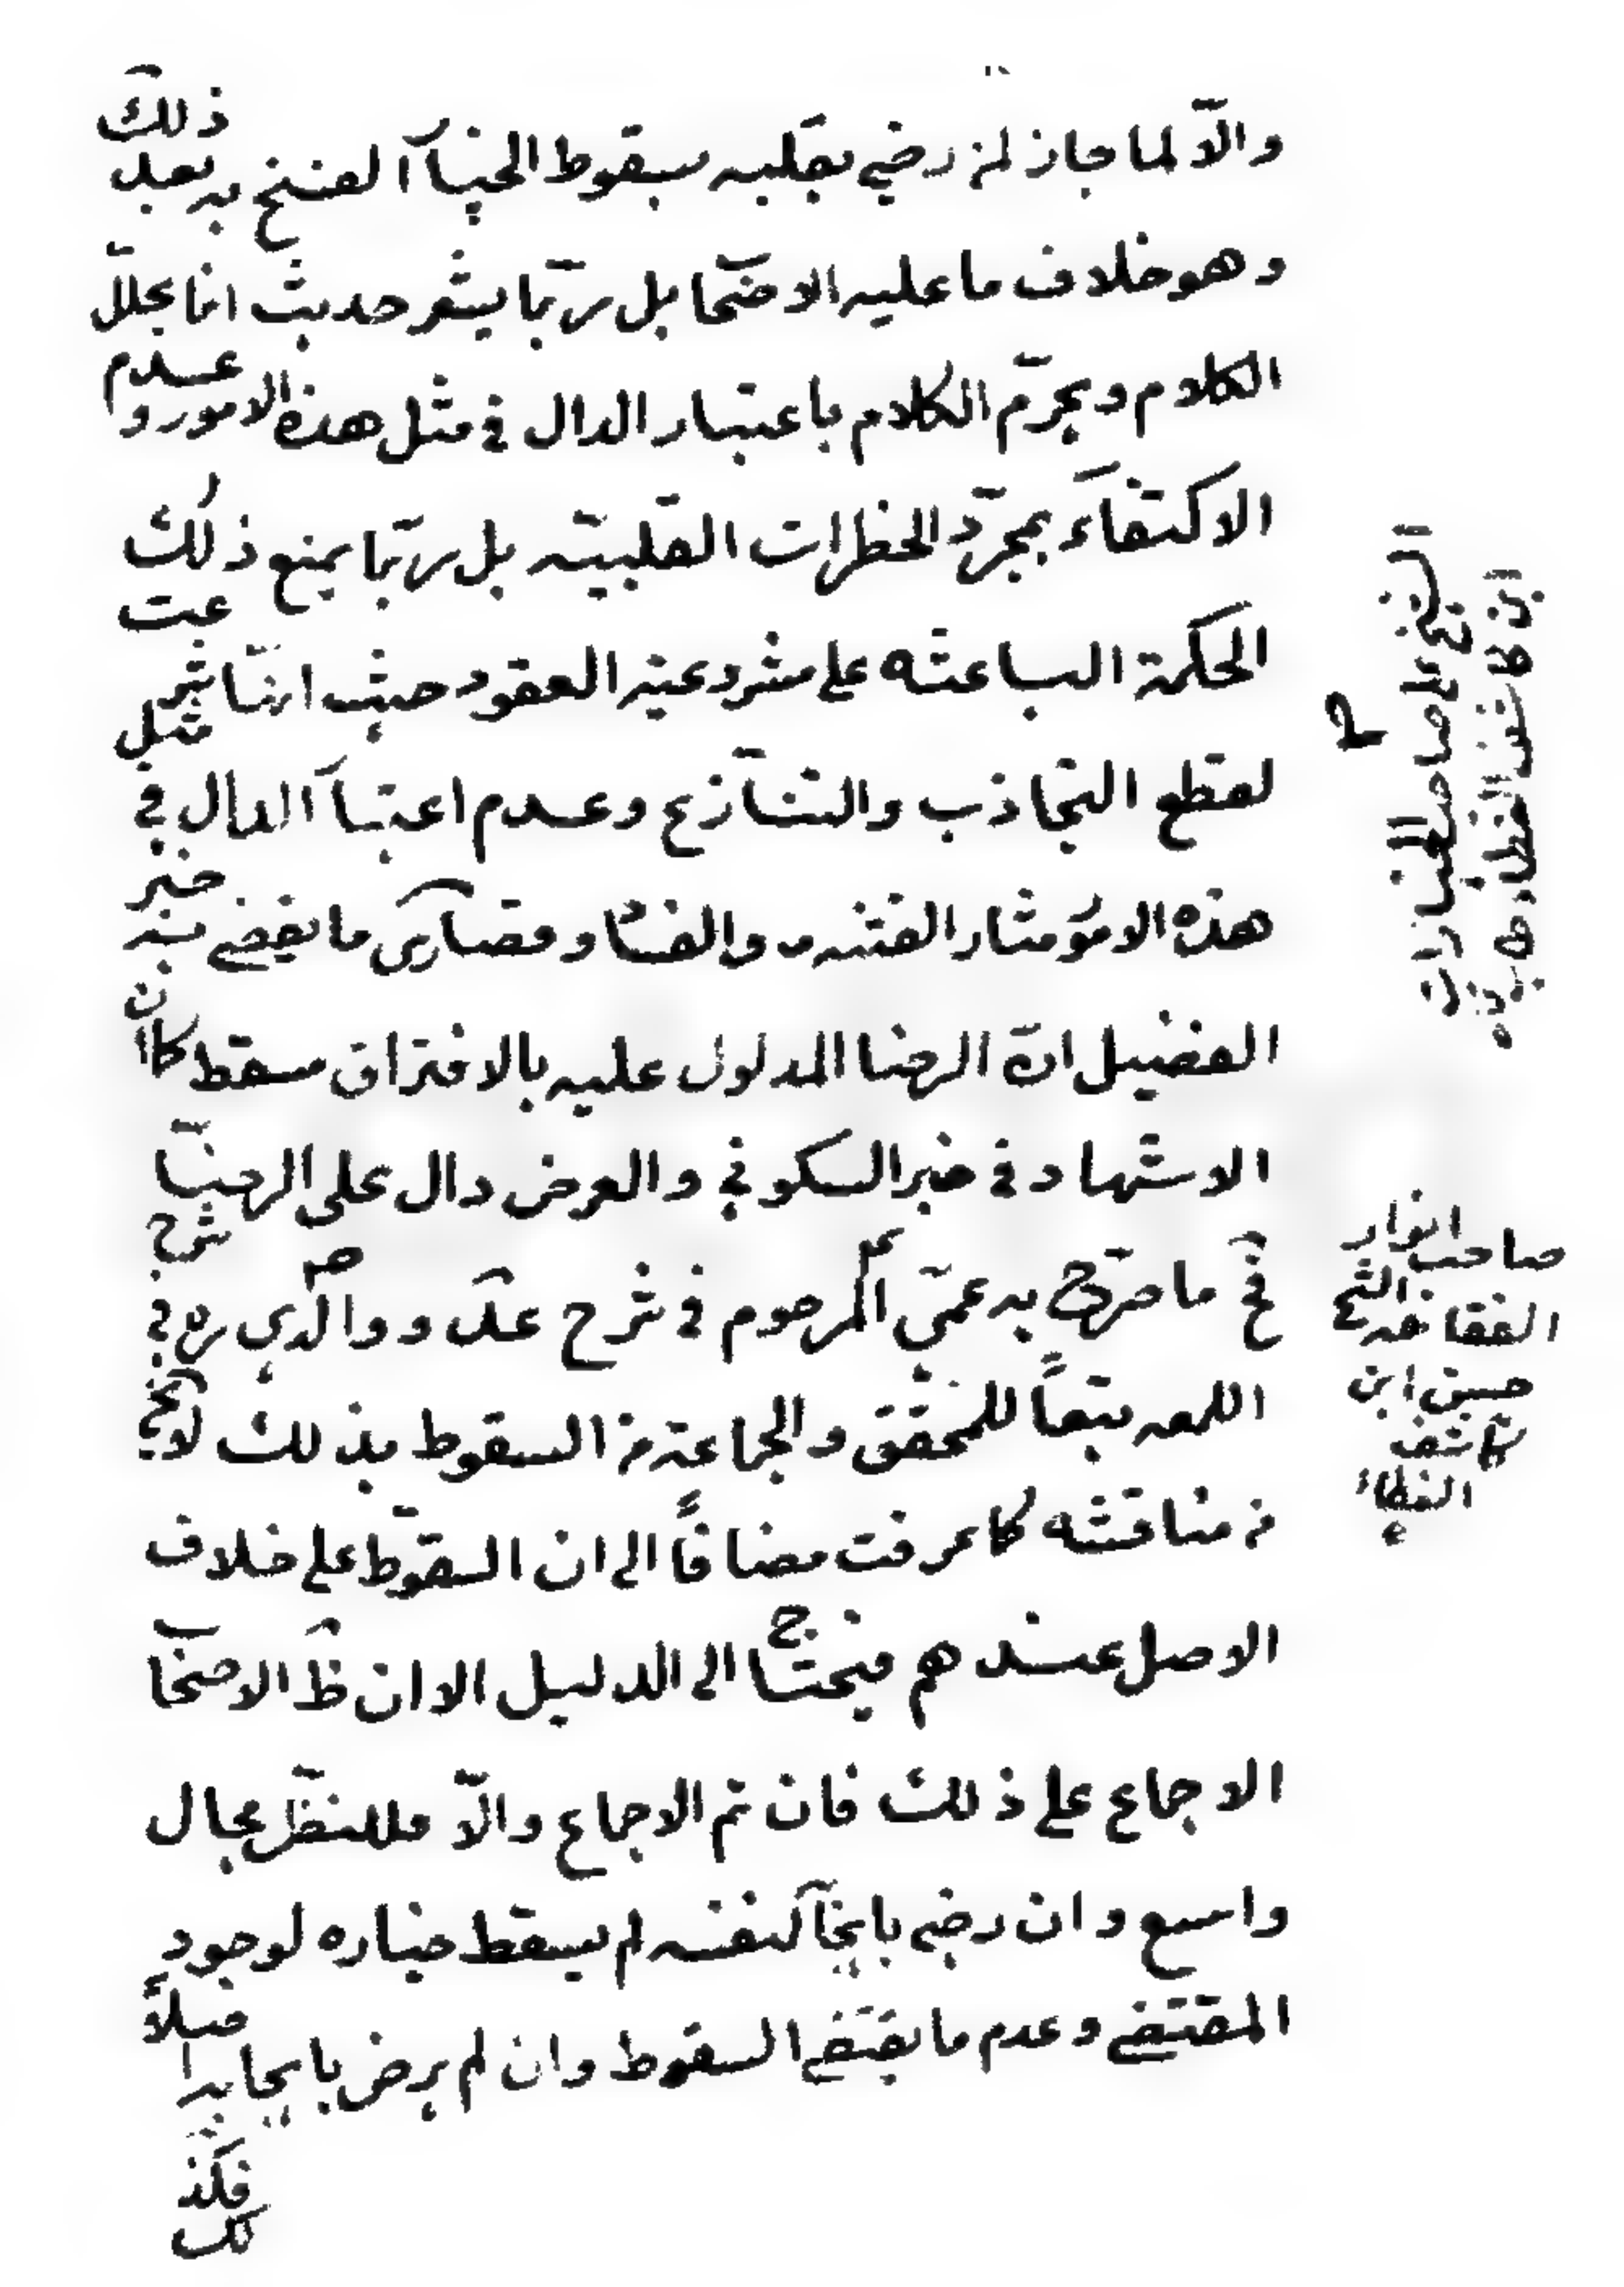 والّا لما جاز لمن رضي بقلبه سقوط الخيا الفسخ به بعد ذلك
وهو خلاف ما عليه الاصحا بل ربّما يشعر حديث انما يحلل
الكلام ويحرّم الكلام باعتبار الدال في مثل هذه الامور وعدم
الاكتفاء بمجرّد الخطرات القلبيّه بل ربّما يمنع ذلك
الحكمة الباعثه على مشروعية العقود حيث انّها شرعت
لقطع التجاذب والتنازع وعدم اعتبا الدال في مثل
هذه الامو مثار الفتنه والفسا وقصارى ما يقضي به خبر
الفضيل انّ الرضا المدلول عليه بالافتراق مسقط كما ان
الاستهاد في خبر السكوني والعرض دال على الرضا
فح ما صرّح به عمّي المرحوم في شرح عد ووالدي ره في شرح
اللمعه تبعاً للمحقق والجماعة من السقوط بذلك لا يخ
من مناقشه كما عرفت مضافاً الى ان السقوط على خلاف
الاصل عندهم فيحتا ج الى الدليل الا ان ظ الاصحاب
الاجماع على ذلك فان تم الاجماع والّا فللنظر مجال
واسع وان رضي بايجا لنفسه لم يسقط خياره لوجود
المقتضي وعدم ما يقتضي السقوط وان لم يرض بايجابه اصلاً
فكذلك
الشيخ علي صاحب الخيارات
ابن كاشف الغطاء
صاحب انوار
الفقاهه الشيخ
حسن ابن
كاشف
الغطاء